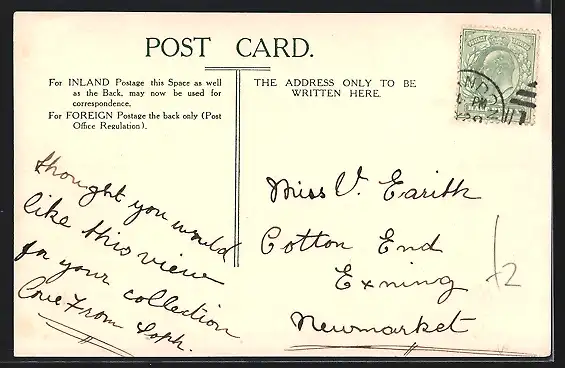 POST CARD.
For INLAND Postage this Space as well
as the Back, may now be used for
correspondence.
For FOREIGN Postage the back only (Post
Office Regulation).
THE ADDRESS ONLY TO BE
WRITTEN HERE.
thought you would
like this view
for your collection
Love From Soph.
Miss V. Earith
Cotton End
Exning
Newmarket
12